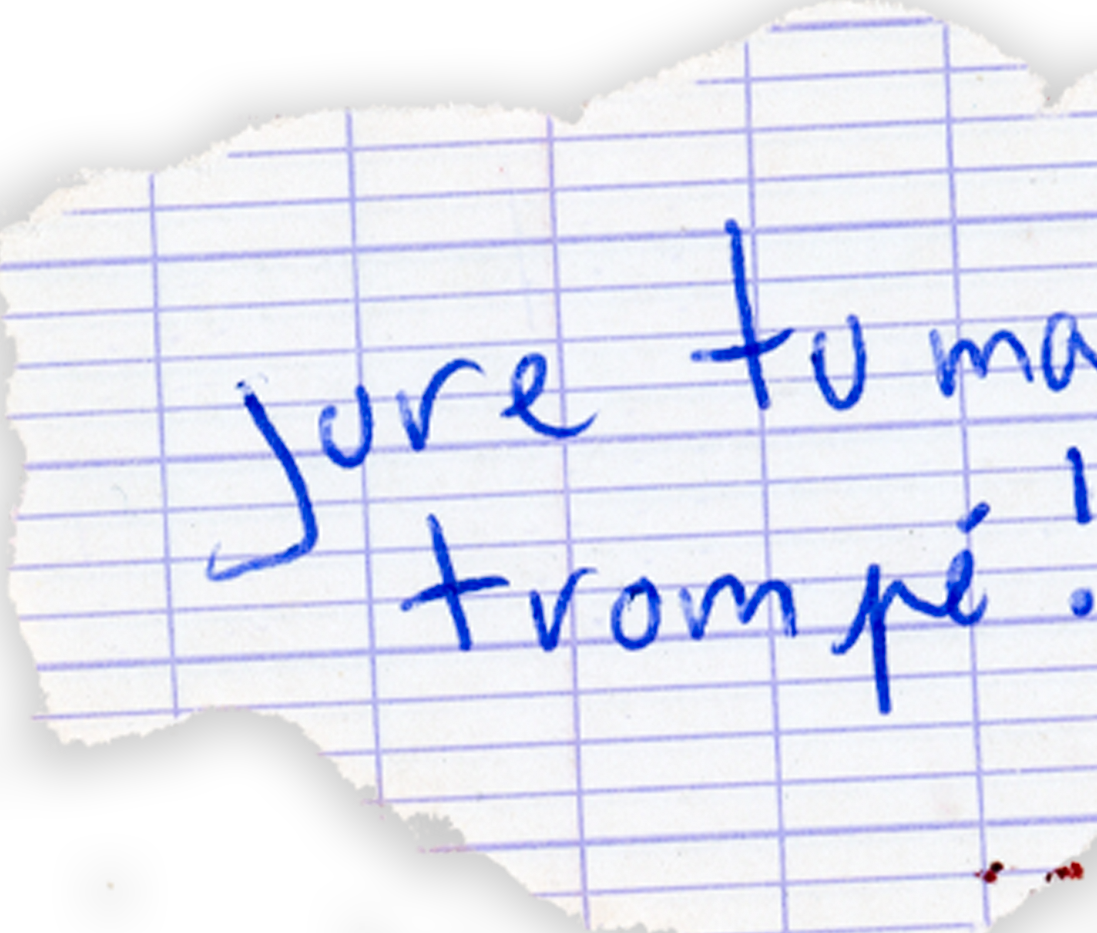 jure tu ma
trompé !